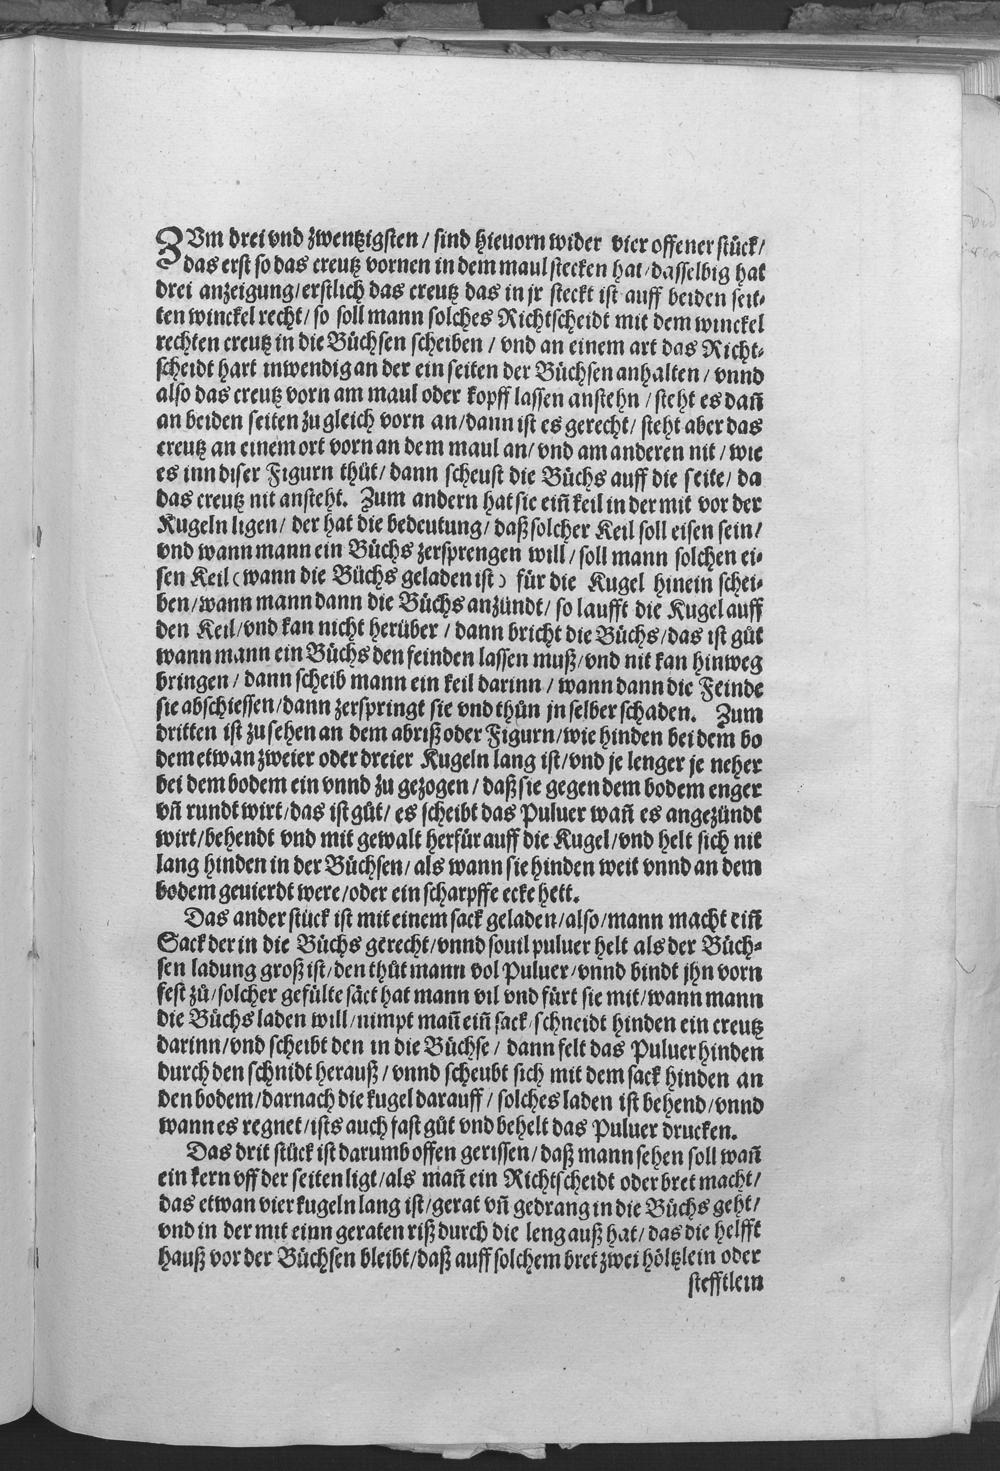 ZVm drei vnd zwentzigsten / sind hieuorn wider vier offener stück /
das erst so das creutz vornen in dem maul stecken hat / dasselbig hat
drei anzeigung / erstlich das creutz das in jr steckt ist auff beiden seit-
ten winckel recht / so soll mann solches Richtscheidt mit dem winckel
rechten creutz in die Büchsen scheiben / vnd an einem art das Richt-
scheidt hart inwendig an der ein seiten der Büchsen anhalten / vnnd
also das creutz vorn am maul oder kopff lassen anstehn / steht es dañ
an beiden seiten zu gleich vorn an / dann ist es gerecht / steht aber das
creutz an einem ort vorn an dem maul an / vnd am anderen nit / wie
es inn diser Figurn thůt / dann scheust die Büchs auff die seite / da
das creutz nit ansteht. Zum andern hat sie eiñ keil in der mit vor der
Kugeln ligen / der hat die bedeutung / daß solcher Keil soll eisen sein /
vnd wann mann ein Büchs zersprengen will / soll mann solchen ei-
sen Keil (wann die Büchs geladen ist) für die Kugel hinein schei-
ben / wann mann dann die Büchs anzündt / so laufft die Kugel auff
den Keil / vnd kan nicht herüber / dann bricht die Büchs / das ist gůt
wann mann ein Büchs den feinden lassen muß / vnd nit kan hinweg
bringen / dann scheib mann ein keil darinn / wann dann die Feinde
sie abschiessen / dann zerspringt sie vnd thůn jn selber schaden. Zum
dritten ist zu sehen an dem abriß oder Figurn / wie hinden bei dem bo
dem etwan zweier oder dreier Kugeln lang ist / vnd je lenger je neher
bei dem bodem ein vnnd zu gezogen / daß sie gegen dem bodem enger
vñ rundt wirt / das ist gůt / es scheibt das Puluer wañ es angezündt
wirt / behendt vnd mit gewalt herfür auff die Kugel / vnd helt sich nit
lang hinden in der Büchsen / als wann sie hinden weit vnnd an dem
bodem geuierdt were / oder ein scharpffe ecke hett.
Das ander stück ist mit einem sack geladen / also / mann macht eiñ
Sack der in die Büchs gerecht / vnnd souil puluer helt als der Büch-
sen ladung groß ist / den thůt mann vol Puluer / vnnd bindt jhn vorn
fest zů / solcher gefülte säct hat mann vil vnd fürt sie mit / wann mann
die Büchs laden will / nimpt mañ eiñ sack / schneidt hinden ein creutz
darinn / vnd scheibt den in die Büchse / dann felt das Puluer hinden
durch den schnidt herauß / vnnd scheubt sich mit dem sack hinden an
den bodem / darnach die kugel darauff / solches laden ist behend / vnnd
wann es regnet / ists auch fast gůt vnd behelt das Puluer drucken.
Das drit stück ist darumb offen gerissen / daß mann sehen soll wañ
ein kern vff der seiten ligt / als mañ ein Richtscheidt oder bret macht /
das etwan vier kugeln lang ist / gerat vñ gedrang in die Büchs geht /
vnd in der mit einn geraten riß durch die leng auß hat / das die helfft
hauß vor der Büchsen bleibt / daß auff solchem bret zwei höltzlein oder
stefftlein